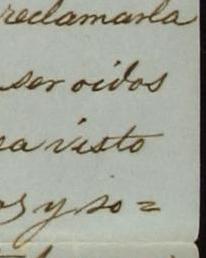 reclamarla
ser oidos
ea visto
os y so=